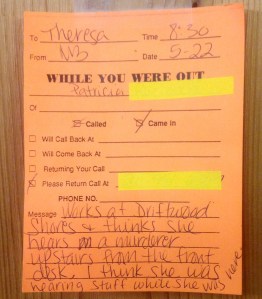 To Theresa Time 8:30
From NB Date 5-22
WHILE YOU WERE OUT
Patricia
Of
Called Came in
Will Call Back At
Will Come Back At
Returning Your Call
Please Return Call At
PHONE NO.
Message Works at Driftwood
Shores & thinks she
hears a murderer
upstairs from the front
desk. I think she was
hearing stuff while she was
here.